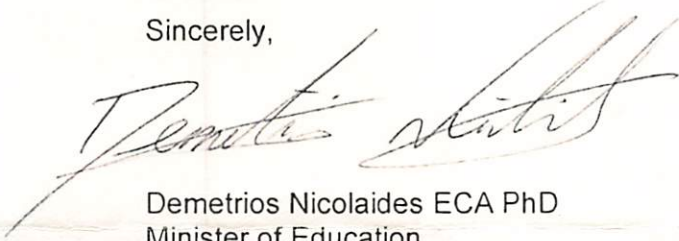 Sincerely,
Demetrios Nicolaides ECA PhD
Minister of Education